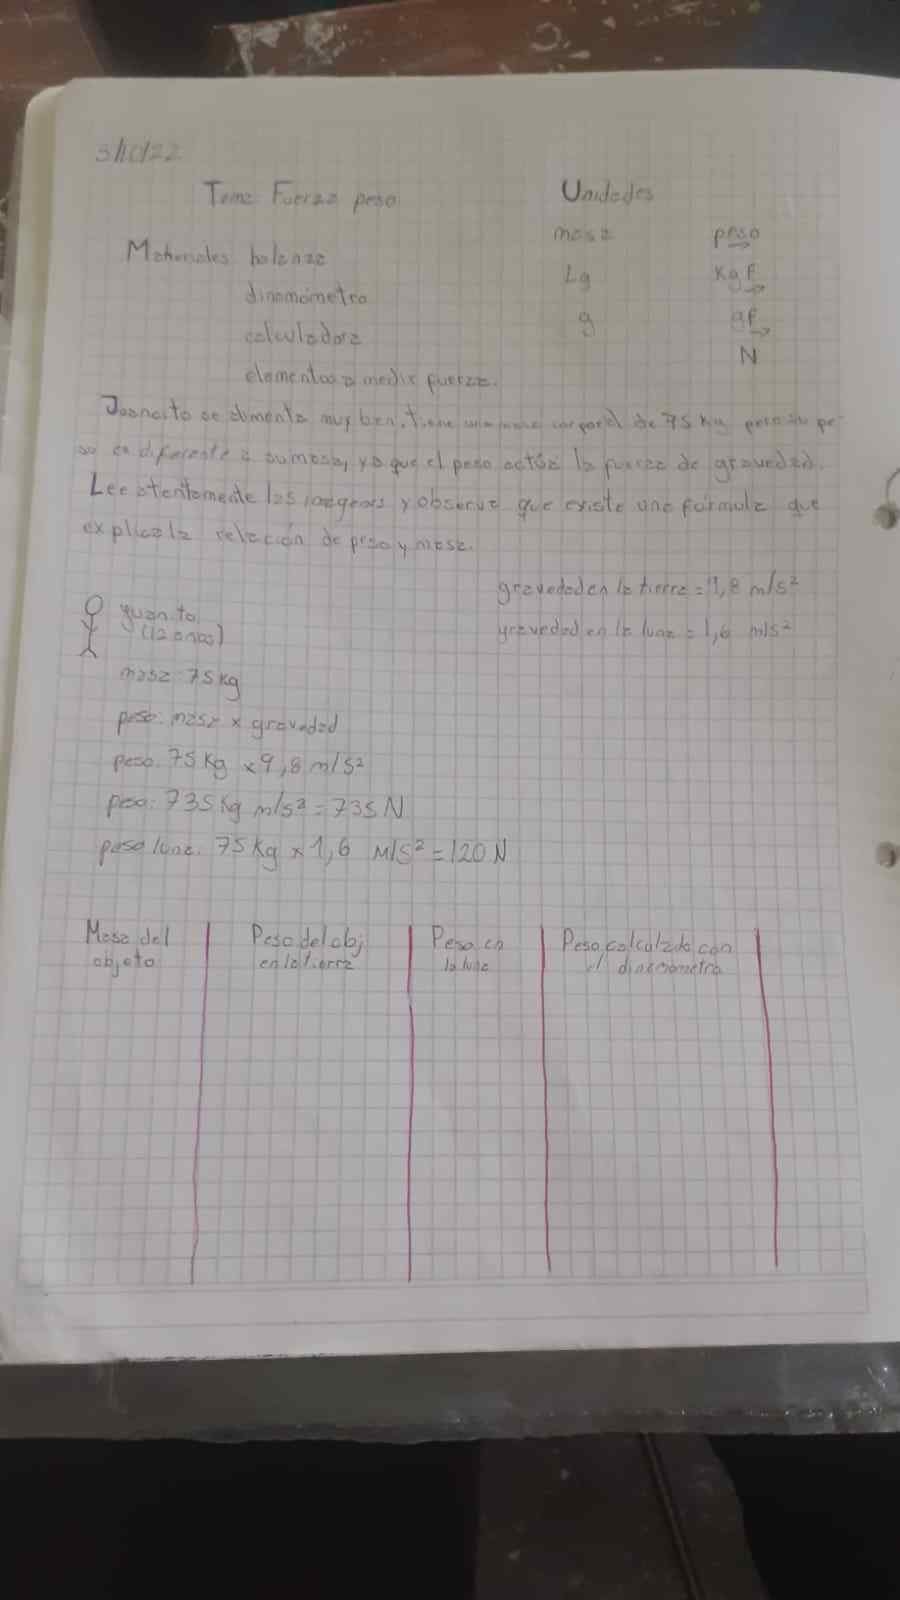 3/10/22
Tema: Fuerza peso
Unidades
masa peso
Materiales balanza
kg kgf
dinamómetro
g gf
calculadora
N
elementos a medir fuerza.
Juancito se alimenta muy bien, tiene una masa corporal de 75 kg pero su pe-
so es diferente a su masa, ya que el peso actúa la fuerza de gravedad.
Lee atentamente las imagenes y observa que existe una fórmula que
explica la relación de peso y masa.
gravedad en la tierra = 9,8 m/s²
Juanito
gravedad en la luna = 1,6 m/s²
(12 años)
masa: 75 kg
peso: masa x gravedad
peso: 75 Kg x 9,8 m/s²
peso: 735 Kg m/s² = 735 N
peso luna: 75 Kg x 1,6 M/S² = 120 N
Masa del Peso del obj Peso en Peso calculado con
objeto en la tierra la luna el dinamómetro